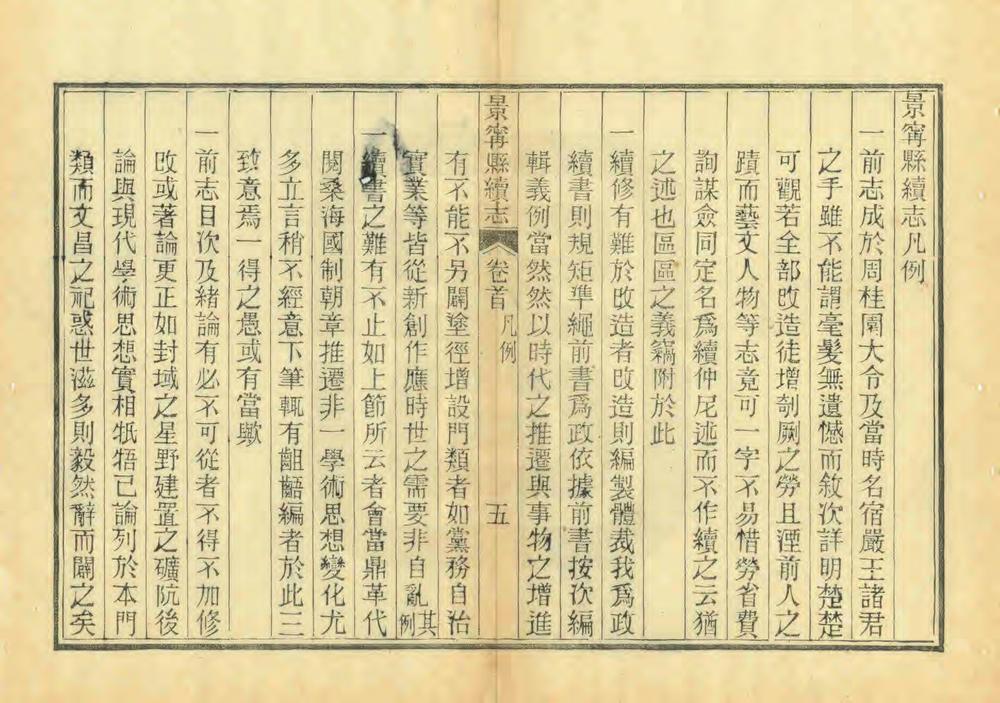 景寧縣續志凡例
一前志成於周桂圍大令及當時名宿嚴王諸君
之手雖不能謂毫髮無遺憾而敘次詳明楚楚
可觀若全部改造徒增剞劂之勞且湮前人之
蹟而藝文人物等志竟可一字不易惜勞省費
詢謀僉同定名爲續仲尼述而不作續之云猶
之述也區區之義竊附於此
一續修有難於改造者改造則編製體裁我爲政
續書則規矩準繩前書爲政依據前書按次編
輯義例當然然以時代之推遷與事物之增進
景寧縣續志 卷首 凡例 五
有不能不另闢塗徑增設門類者如黨務自治
實業等皆從新創作應時世之需要非自亂其例
一續書之難有不止如上節所云者會當鼎革代
閱桑海國制朝章推遷非一學術思想變化尤
多立言稍不經意下筆輒有齟齬編者於此三
致意焉一得之愚或有當歟
一前志目次及緒論有必不可從者不得不加修
改或著論更正如封域之星野建置之礦阬後
論與現代學術思想實相牴牾已論列於本門
類而文昌之祀惑世滋多則毅然辭而闢之矣